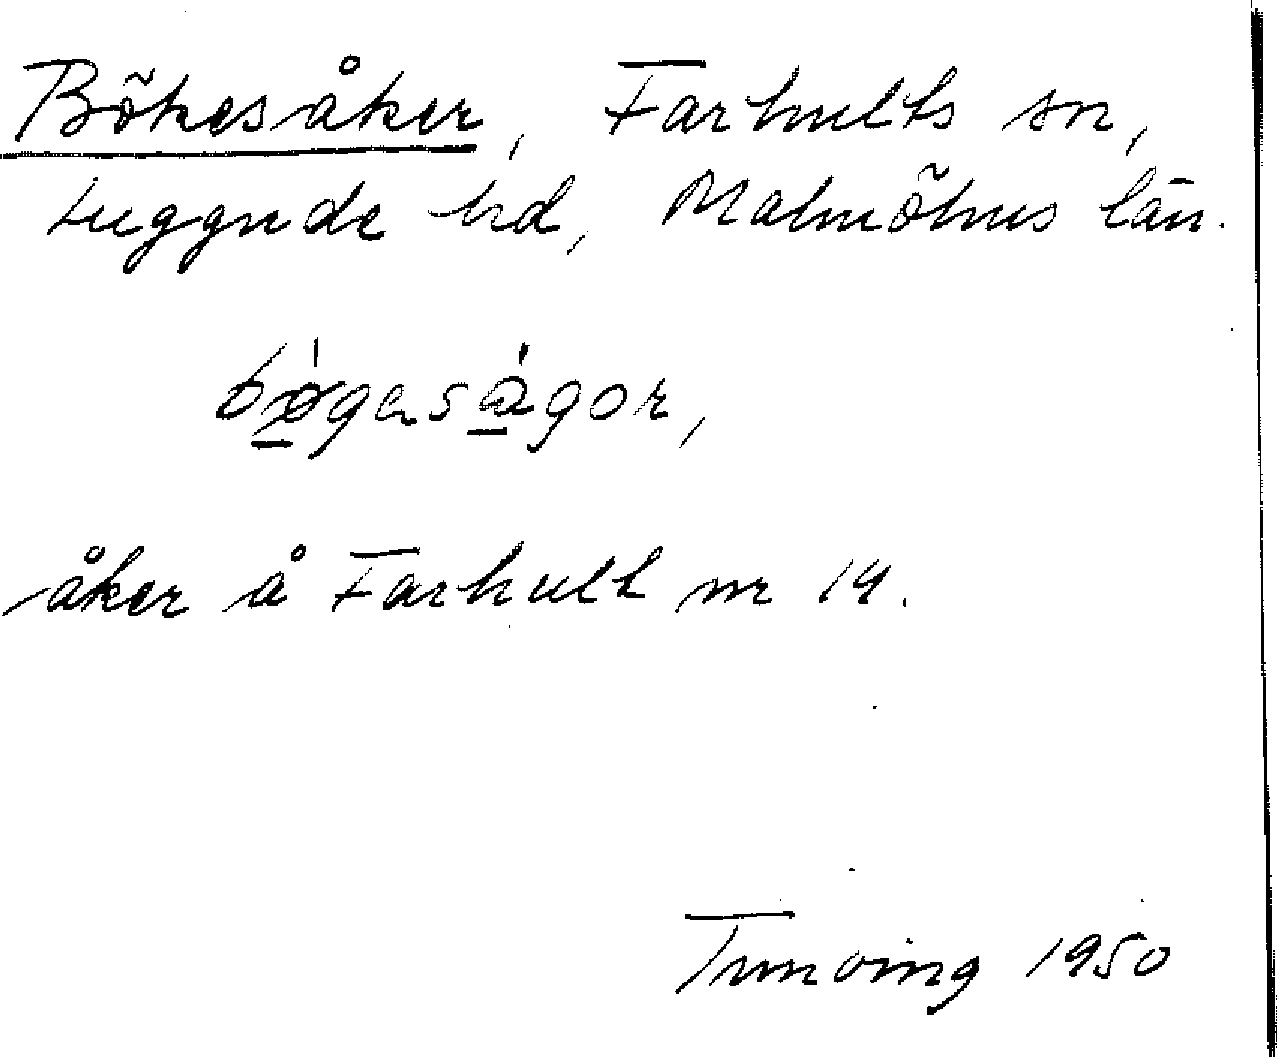 Bökesåker, Farhults sn,
Luggude hd, Malmöhus län.
bøgasågor,
åker å Farhult nr 14.
Tunving 1950